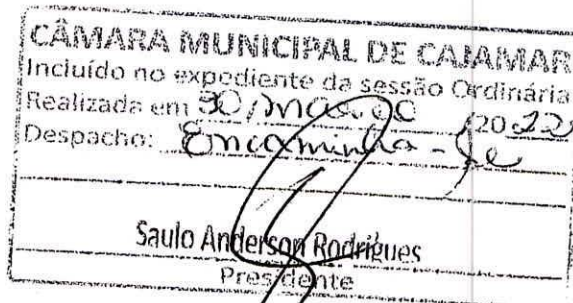 CÂMARA MUNICIPAL DE CAJAMAR
Incluído no expediente da sessão Ordinária
Realizada em 30/março/2022
Despacho: Encaminha-se
Saulo Anderson Rodrigues
Presidente